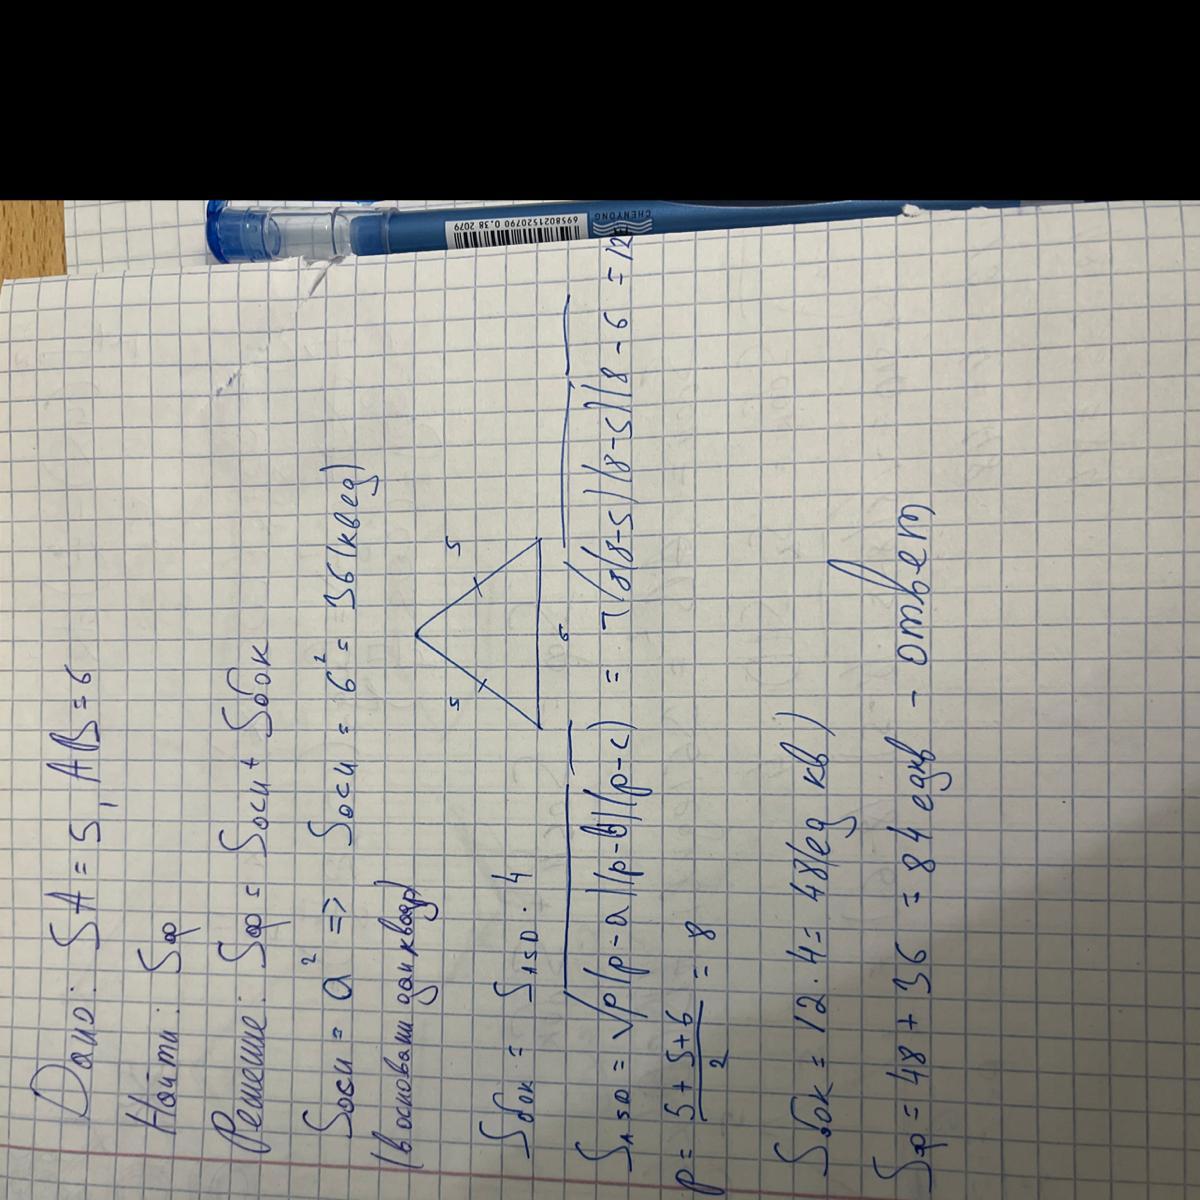 Дано: SA = 5, AB = 6
Найти: Sф
Решение: Sф = Sосн + Sбок
Sосн = a² => Sосн = 6² = 36 (кв ед)
(в основании дан квадр)
5 5
6
Sбок = S ASD · 4
S ASD = √p(p-a)(p-b)(p-c) = √8(8-5)(8-5)(8-6 = 12
p = 5+5+6/2 = 8
Sбок = 12 · 4 = 48 (ед кв)
Sф = 48 + 36 = 84 ед кв - ответ
6958021520790 0.38 2079
CHENYONG